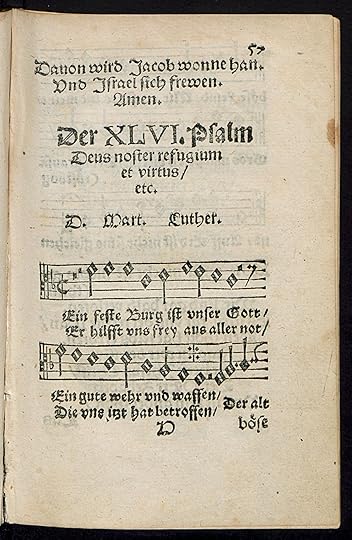 57
Dauon wird Jacob wonne han.
Vnd Israel sich frewen.
Amen.
Der XLVI. Psalm
Deus noster refugium
et virtus/
etc.
D. Mart. Luther.
Ein feste Burg ist vnser Gott/
Er hilfft vns frey aus aller not/
Ein gute wehr vnd waffen/
Die vns itzt hat betroffen/
Der alt
böse